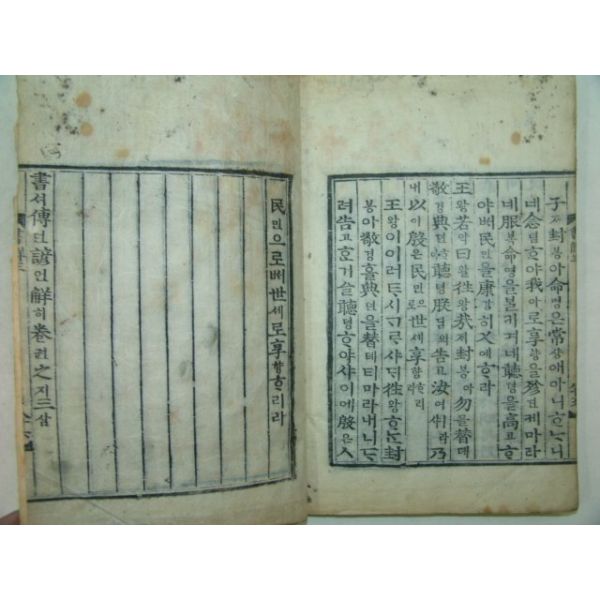 子ᄌᆞ封봉아命명은常샹애아니ᄒᆞᄂᆞ니
네念념ᄒᆞ야我아로享향을殄딘케마라
네服복命명을불키며네聽텽을高고ᄒᆞ
야ᄡᅥ民민을康강ᄒᆞ며乂예ᄒᆞ라
王왕若약曰왈往왕哉ᄌᆡ封봉아勿믈替톄
敬경典뎐聽텽朕딤의告고汝여ㅣ라乃
내以이殷은民민으로世셰享향ᄒᆞ리라
王왕이이러ᄐᆞ시ᄀᆞᄅᆞ샤ᄃᆡ往왕ᄒᆞᄂᆞᆫ封
봉아敬경ᄒᆞᆯ典뎐을替톄티마라내너ᄃᆞ
려告고ᄒᆞ기슬聽텽ᄒᆞ야샤이예殷은人
民민으로ᄡᅥ世셰로享향ᄒᆞ리라
書셔傳뎐諺언解ᄒᆡ卷권之지三삼